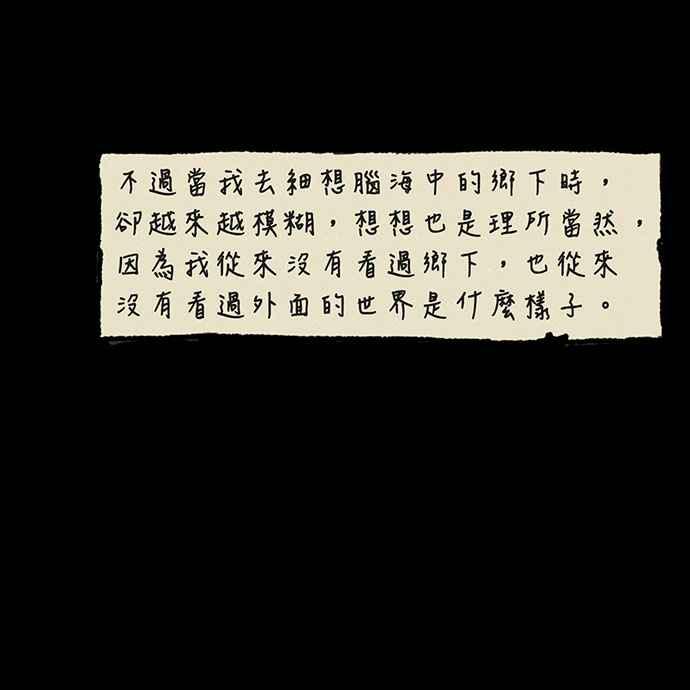 不過當我去細想腦海中的鄉下時，
卻越來越模糊，想想也是理所當然，
因為我從來沒有看過鄉下，也從來
沒有看過外面的世界是什麼樣子。